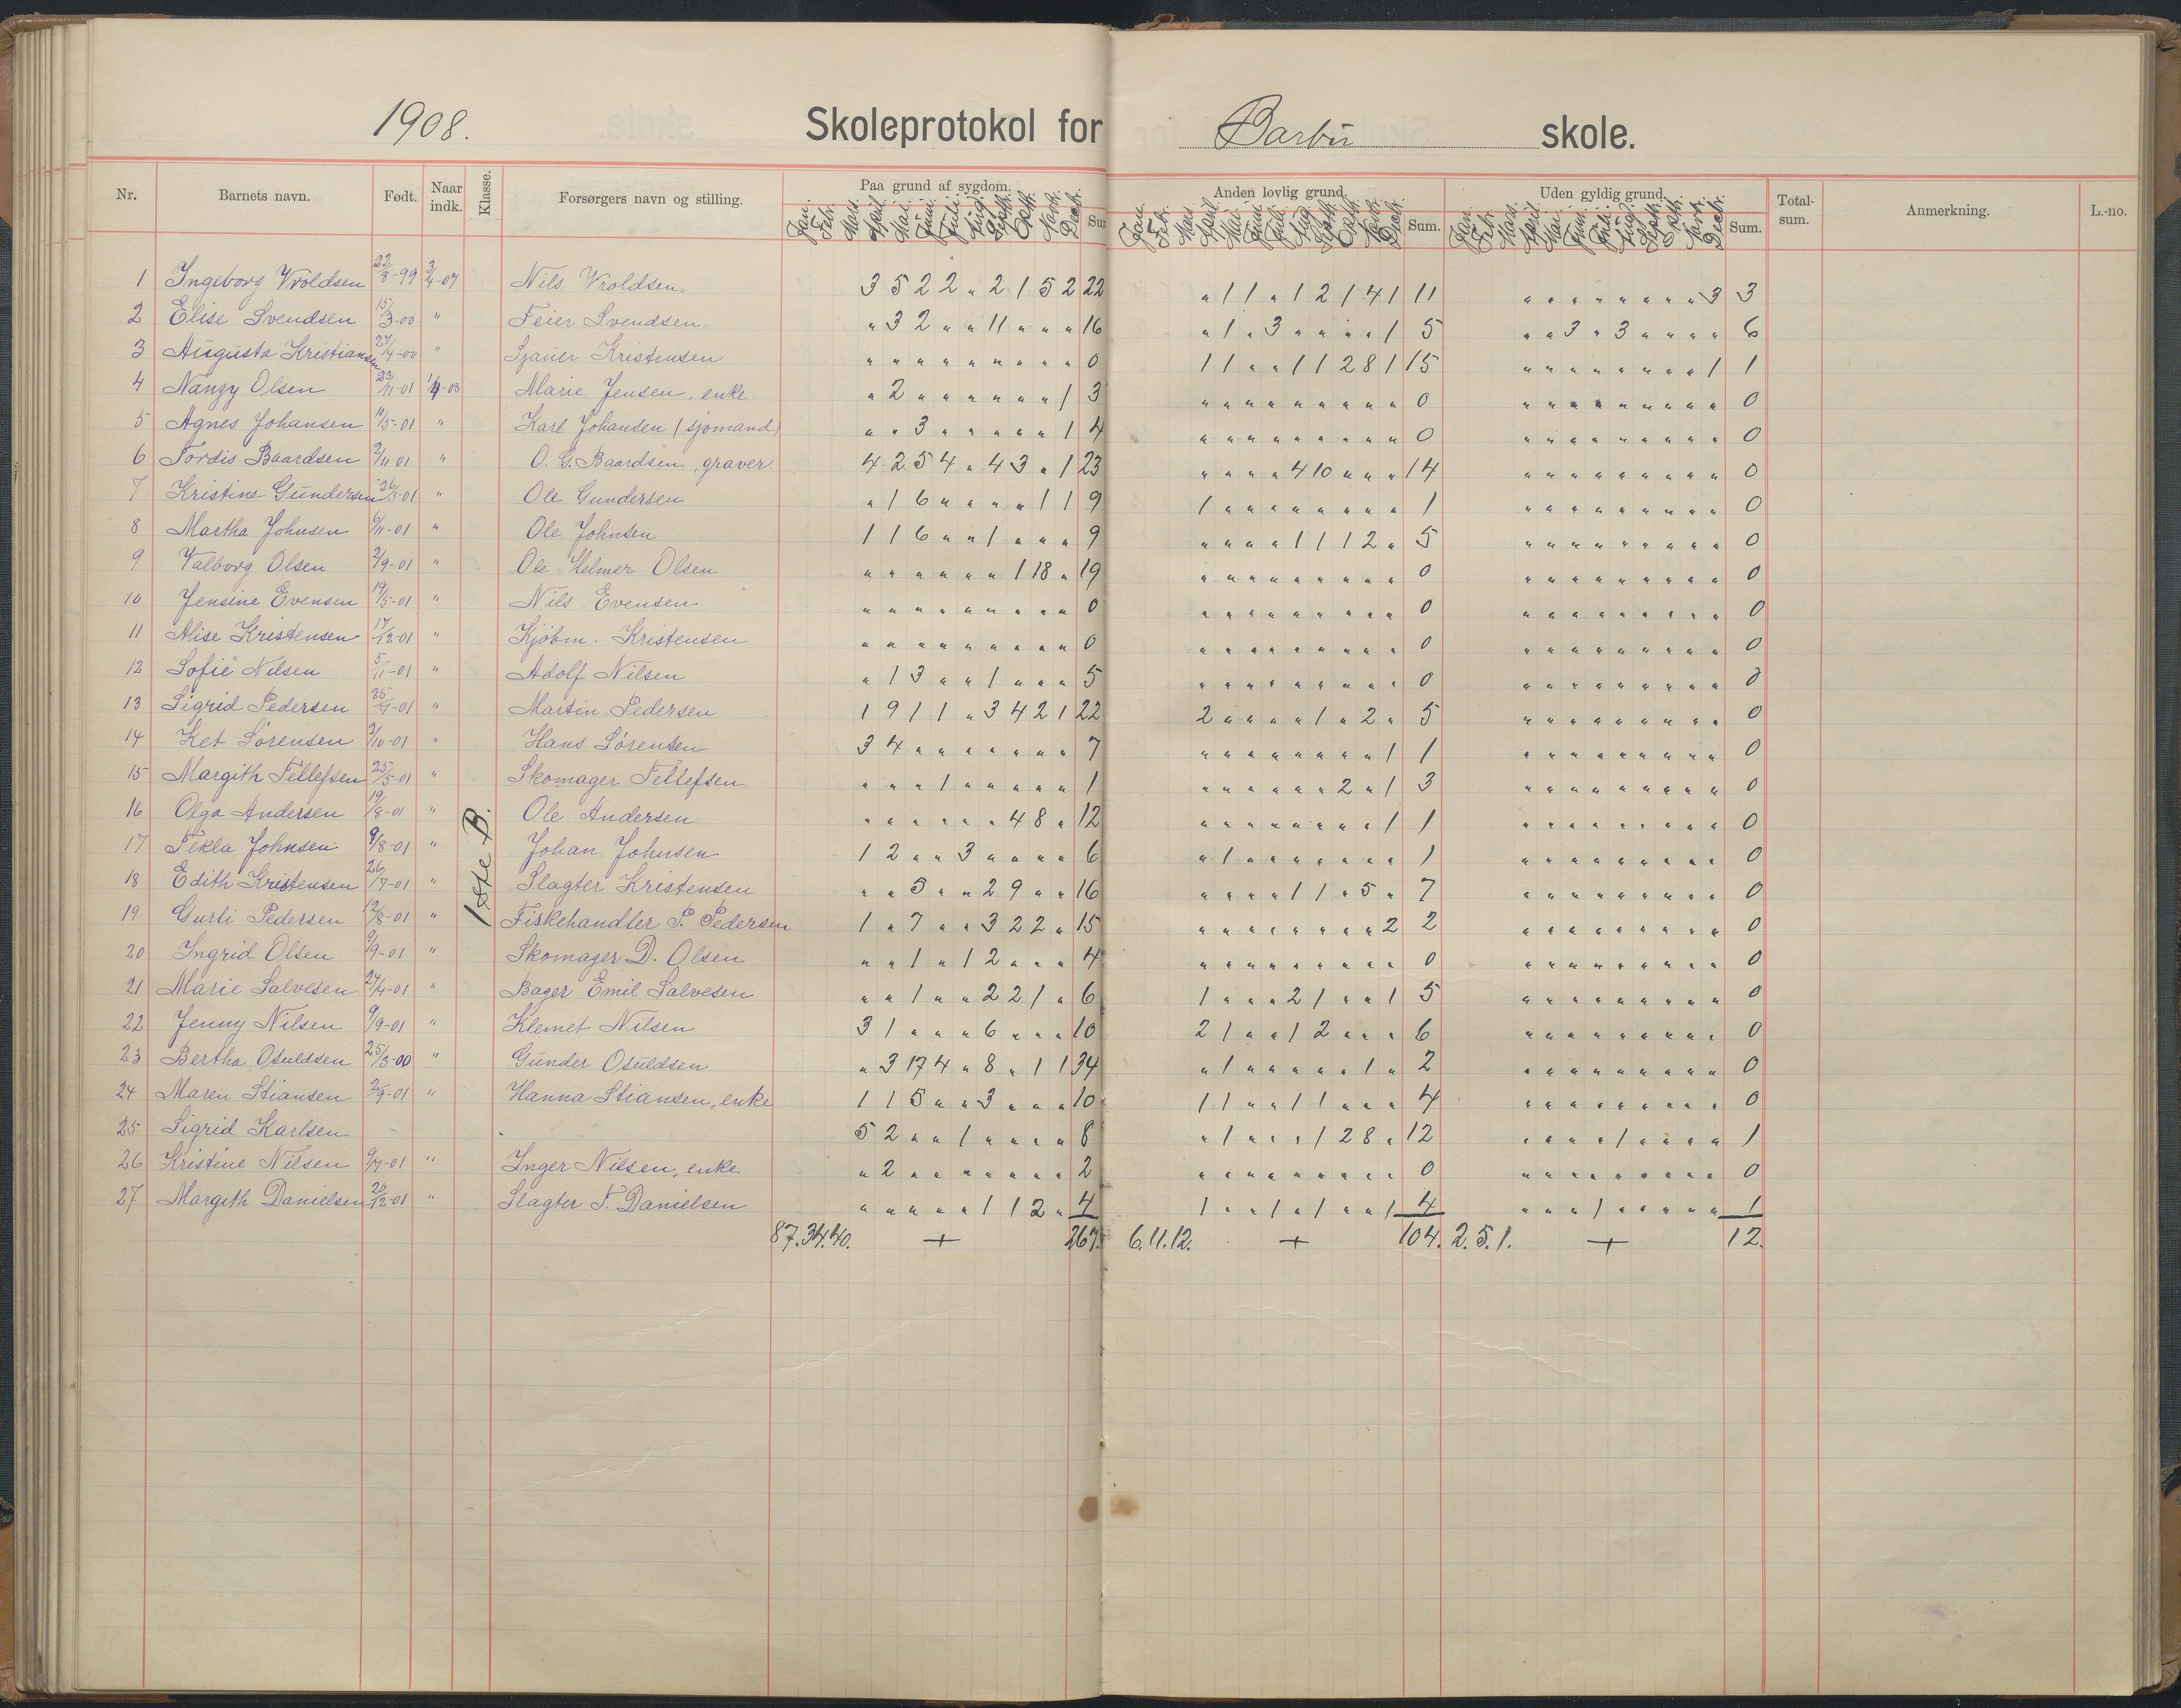 1908. Skoleprotokol for Barbu skole.
Nr. Barnets navn. Født. Naar indk. Klasse. Forsørgers navn og stilling. Paa grund af sygdom. Anden lovlig grund. Uden gyldig grund. Total-sum. Anmerkning. L.-no.
Jan. Febr. Mars. April. Mai. Juni. Juli. Aug. Septr. Octr. Novbr. Decbr. Sum. Jan. Febr. Mars. April. Mai. Juni. Juli. Aug. Septr. Octr. Novbr. Decbr. Sum. Jan. Febr. Mars. April. Mai. Juni. Juli. Aug. Septr. Octr. Novbr. Decbr. Sum.
1 Ingeborg Vroldsen 22/8-99 Nils Vroldsen 3 5 2 2 " 2 1 5 2 22 " 1 1 " 1 2 1 4 1 11 " " " " " " " " 3 3
2 Elise Svendsen 15/3-00 " Feier Svendsen " 3 2 " " 11 " " " 16 " 1 " 3 " " " " 1 5 " " 3 " 3 " " " " 6
3 Augusta Kristiansen 27/4-00 " Sjauer Kristensen " " " " " " " " " 0 1 1 " " 1 1 2 8 1 15 " " " " " " " " 1 1
4 Nangy Olsen 23/11-01 1/4-08 Marie Jensen, enke " 2 " " " " " " 1 3 " " " " " " " " " 0 " " " " " " " " " 0
5 Agnes Johansen 11/5-01 " Karl Johansen (sjømand) " " 3 " " " " " 1 4 " " " " " " " " " 0 " " " " " " " " " 0
6 Tordis Baardsen 2/11 01 " O. G. Baardsen, graver 4 2 5 4 " 4 3 " 1 23 " " " " 4 10 " " " 14 " " " " " " " " " 0
7 Kristine Gundersen 26/3-01 " Ole Gundersen " 1 6 " " " " 1 1 9 1 " " " " " " " " 1 " " " " " " " " " 0
8 Martha Johnsen 6/11-01 " Ole Johnsen 1 1 6 " " 1 " " " 9 " " " " 1 1 1 2 " 5 " " " " " " " " " 0
9 Valborg Olsen 2/9-01 " Ole Helmer Olsen " " " " " " 1 18 " 19 " " " " " " " " " 0 " " " " " " " " " 0
10 Jensine Evensen 19/5-01 " Nils Evensen " " " " " " " " " 0 " " " " " " " " " 0 " " " " " " " " " 0
11 Alise Kristensen 17/12-01 " Kjøbm. Kristensen " " " " " " " " " 0 " " " " " " " " " 0 " " " " " " " " " 0
12 Sofie Nilsen 5/11-01 " Adolf Nilsen " 1 3 " " 1 " " " 5 " " " " " " " " " 0 " " " " " " " " " 0
13 Sigrid Pedersen " Martin Pedersen 1 9 1 1 " 3 4 2 1 22 2 " " " " 1 " 2 " 5 " " " " " " " " " 0
14 Ket Sørensen 3/10-01 " Hans Sørensen 3 4 " " " " " " " 7 " " " " " " " " 1 1 " " " " " " " " " 0
15 Margith Tellefsen 25/5-01 " Skomager Tellefsen " " " 1 " " " " " 1 " " " " " " 2 " 1 3 " " " " " " " " " 0
16 Olga Andersen 19/8-01 " Ole Andersen " " " " " " 4 8 " 12 " " " " " " " " 1 1 " " " " " " " " " 0
17 Tekla Johnsen 9/8-01 " Johan Johnsen 1 2 " " 3 " " " " 6 " 1 " " " " " " " 1 " " " " " " " " " 0
1ste B.
18 Edith Kristensen 26/7-01 " Slagter Kristensen " " 5 " " 2 9 " " 16 " " " " 1 1 " 5 " 7 " " " " " " " " " 0
19 Gurli Pedersen 12/8-01 " Fiskehandler P. Pedersen 1 " 7 " " 3 2 2 " 15 " " " " " " " " 2 2 " " " " " " " " " 0
20 Ingrid Olsen 9/9-01 " Skomager D. Olsen " " 1 " 1 2 " " " 4 " " " " " " " " " 0 " " " " " " " " " 0
21 Marie Salvesen 27/4-01 " Bager Emil Salvesen " " 1 " " 2 2 1 " 6 1 " " " 2 1 " " 1 5 " " " " " " " " " 0
22 Jenny Nilsen 9/9-01 " Klemet Nilsen 3 1 " " " 6 " " " 10 2 1 " " 1 2 " " " 6 " " " " " " " " " 0
23 Bertha Osuldsen 25/3-00 " Gunder Osuldsen " 3 17 4 " 8 " 1 1 34 " 1 " " " " " 1 " 2 " " " " " " " " " 0
24 Maren Stiansen 2/9-01 " Hanna Stiansen, enke 1 1 5 " " 3 " " " 10 1 1 " " 1 1 " " " 4 " " " " " " " " " 0
25 Sigrid Karlsen 5 2 " " 1 " " " " 8 " 1 " " " 1 2 8 " 12 " " " " 1 " " " " 1
26 Kristine Nilsen 9/7-01 " Inger Nilsen, enke " 2 " " " " " " " 2 " " " " " " " " " 0 " " " " " " " " " 0
27 Margith Danielsen 20/12-01 " Slagter T. Danielsen " " " " " 1 1 2 " 4 1 " " 1 " 1 " " 1 4 " " " 1 " " " " " 1
87.34.40. + 267 6.11.12. + 104. 2.5.1. + 12.